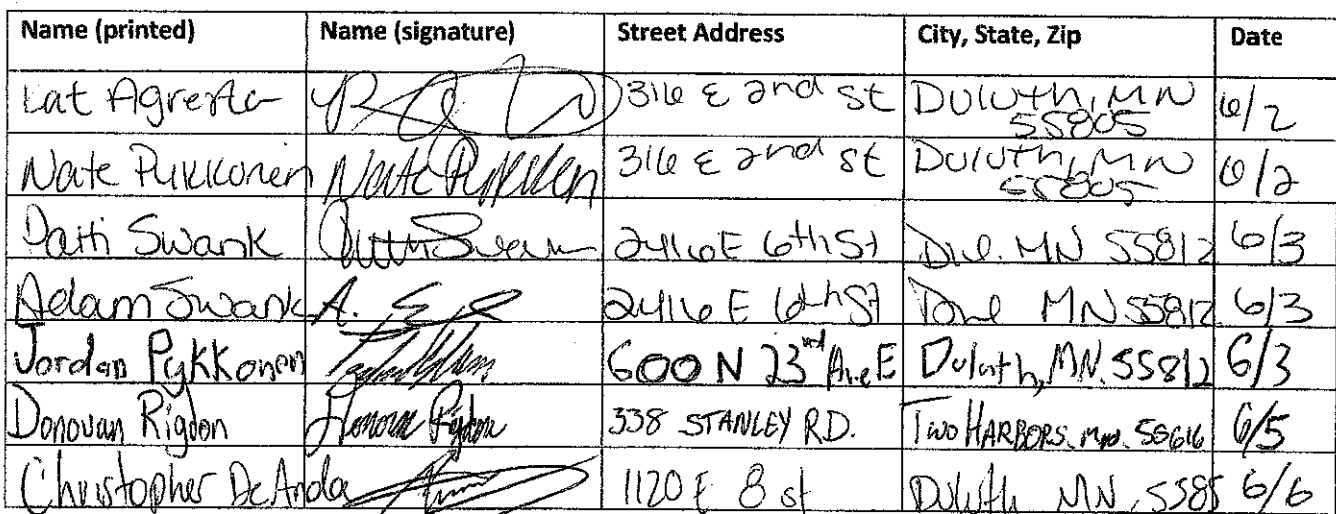 Name (printed) Name (signature) Street Address City, State, Zip Date
Lat Agresta 316 E 2nd St Duluth, MN 55805 6/2
Nate Pykkonen Nate Pykkonen 316 E 2nd St Duluth, MN 55805 6/2
Patti Swank 2416 E 6th St Dul. MN 55812 6/3
Adam Swank A. 2416 E 6th St Dul MN 55812 6/3
Jordan Pykkonen 600 N 23rd Ave E Duluth, MN. 55812 6/3
Donovan Rigdon Donovan Rigdon 338 STANLEY RD. Two HARBORS. MN. 55616 6/5
Christopher DeAnda 1120 E 8 st Duluth MN, 5585 6/6